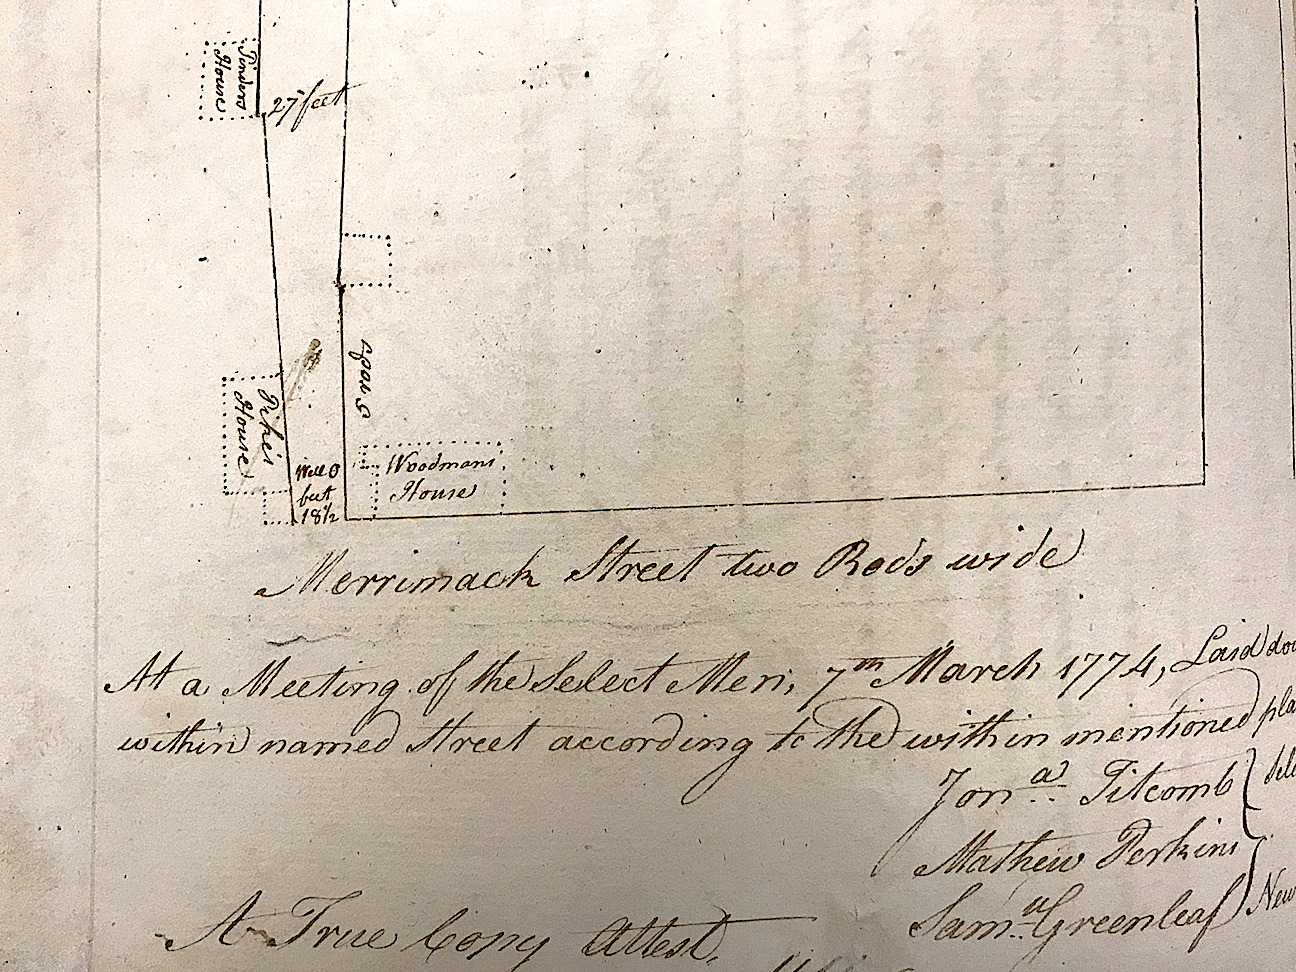 Pinders
House
27 feet
5 rods
Pike's
House
Well O
but
18½
Woodmans
House
Merrimack Street two Rods wide
At a Meeting of the Select Men, 7th March 1774, Laid
within named Street according to the within mentioned
Jona. Titcomb
Mathew Perkins
Saml. Greenleaf
A True Copy Attest,